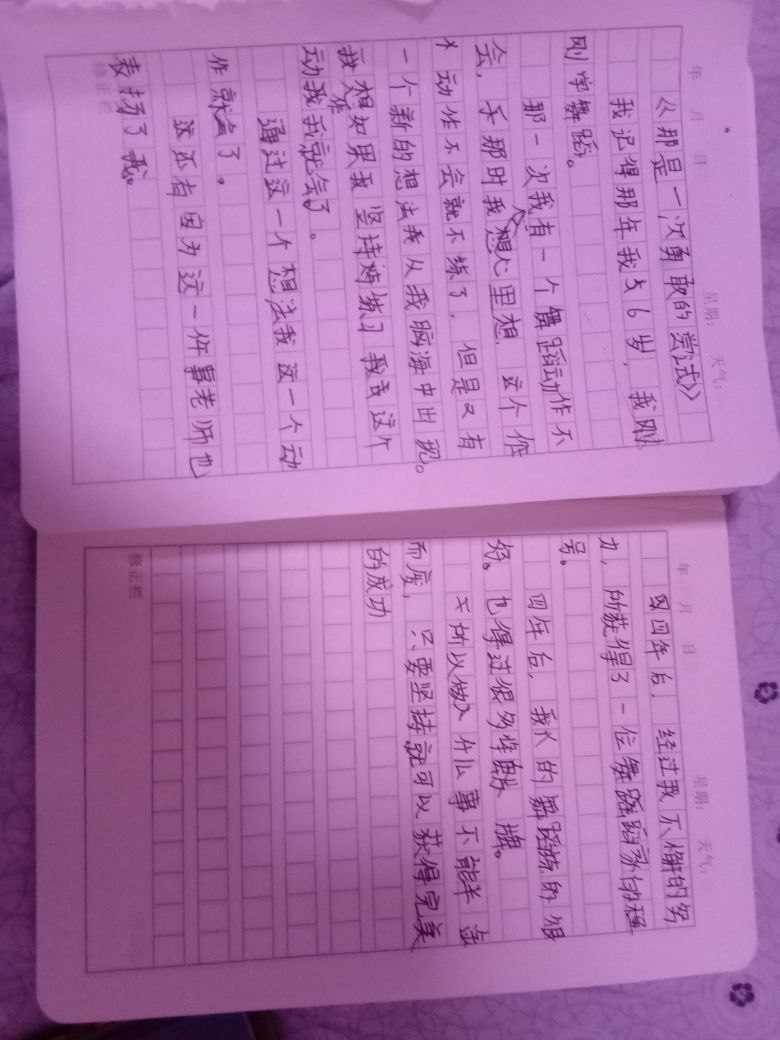 年 月 日 星期: 天气:
《那是一次勇敢的尝试》
我记得那年我5 6岁，我刚
刚学舞蹈。
那一次我有一个舞蹈动作不
会，那时我想心里想，这个
动作不会就不练了，但是又有
一个新的想法我从我脑海中出现。
我想如果我坚持炼练习我这个
动作我就会了。
通过这一个想法我这一个动
作就会了。
这还有因为这一件事老师也
表扬了我。
修正栏
年 月 日 星期: 天气:
四年后，经过我不懈的努
力，所获得了一位舞蹈家的
号。
四年后，我的舞蹈练的很
好。也得过很多牌。
所以做什么事不能半途
而废，只要坚持就可以获得完美
的成功
修正栏